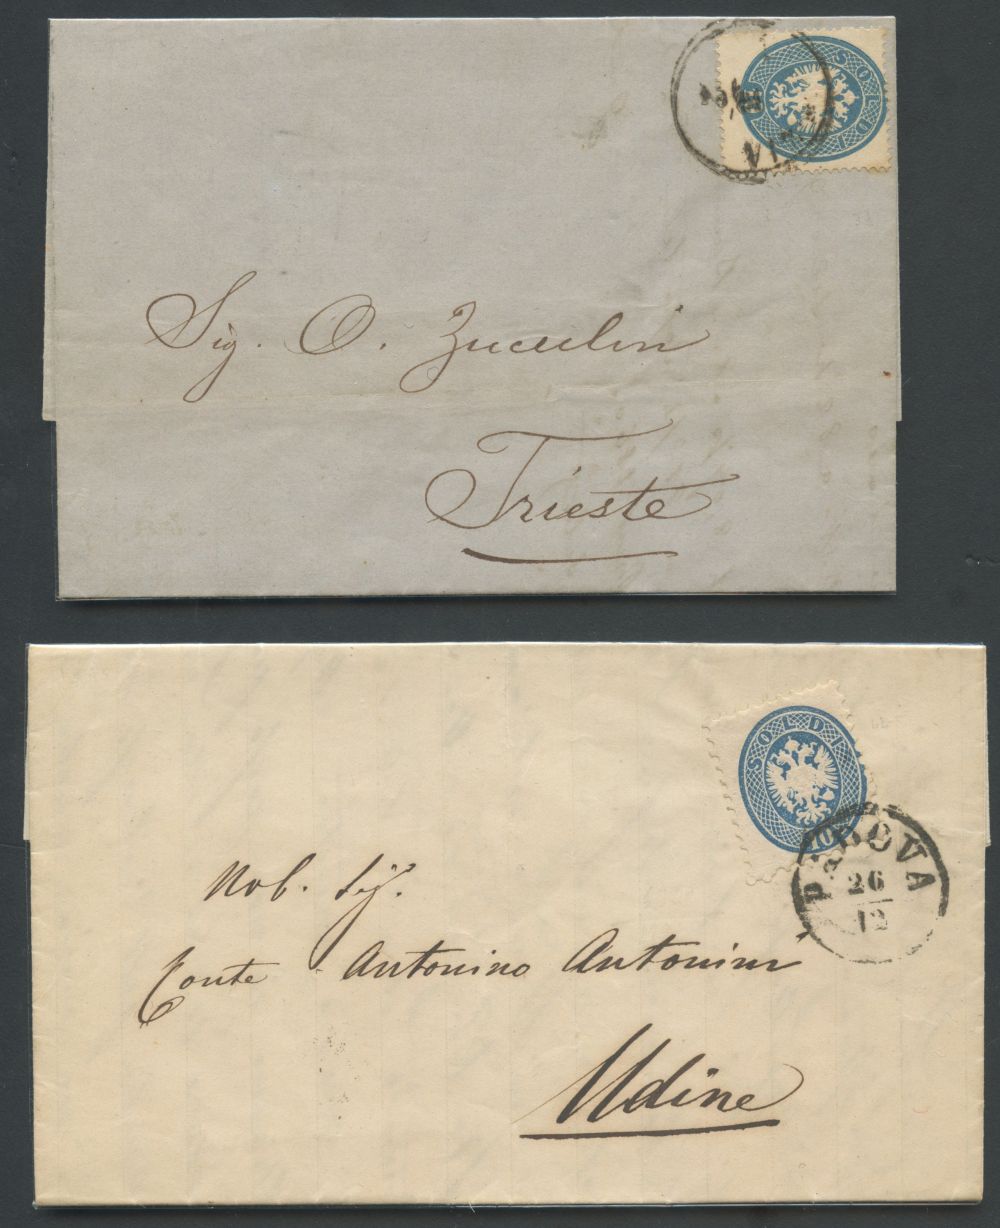 SOLDI
Sig. O.
Trieste
SOLDI
10
PADOVA
26
12
Nob. Sig.
Conte Antonino Antonini
Udine